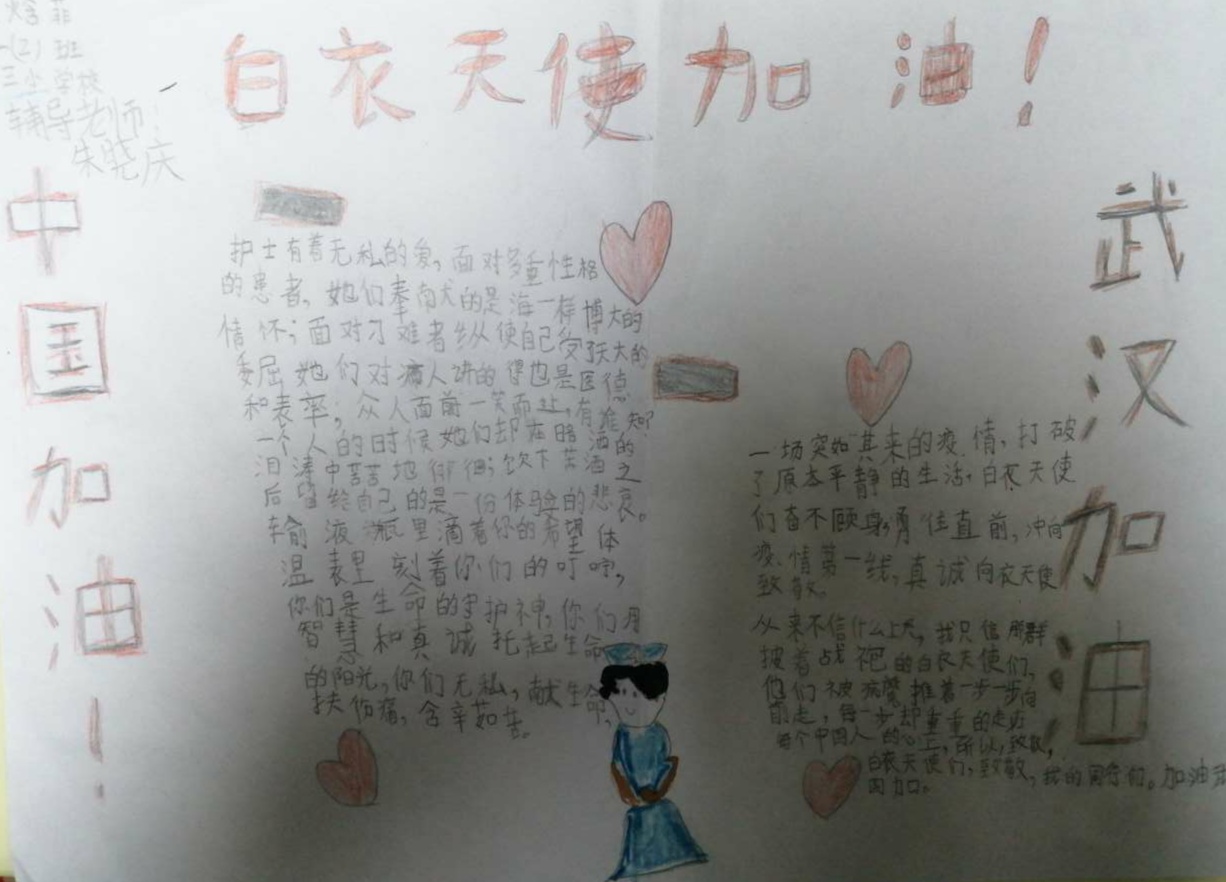 菲
(2)班
三小学校
辅导老师:
朱晓庆
白衣天使加油!
中国加油!
护士有着无私的爱,面对多重性格
的患者,她们奉献的是海一样博大的
情怀;面对刁难者纵使自己受莫大的
委屈她们对病人讲的得也是医德
和表率;众人面前一笑而过,有谁知
一个人的时候她们却在暗洒的
泪涛中苦苦地徘徊;饮下苦酒之
后留给自己的是一份体验的悲哀。
输液瓶里滴着你的希望体
温表里刻着你们的叮咛,
你们是生命的守护神,你们用
智慧和真诚托起生命
的阳光,你们无私,献生命,
扶伤痛,含辛茹苦。
一场突如其来的疫情,打破
了原本平静的生活,白衣天使
们奋不顾身勇往直前,冲向
疫情第一线,真诚向衣天使
致敬。
从来不信什么上天,我只信那群
披着战袍的白衣天使们,
他们被病魔推着一步一步向
前走,每一步却重重的走近
每个中国人的心上,所以,致敬,
白衣天使们,致敬,我的同行们。加油武
加。
武汉加油